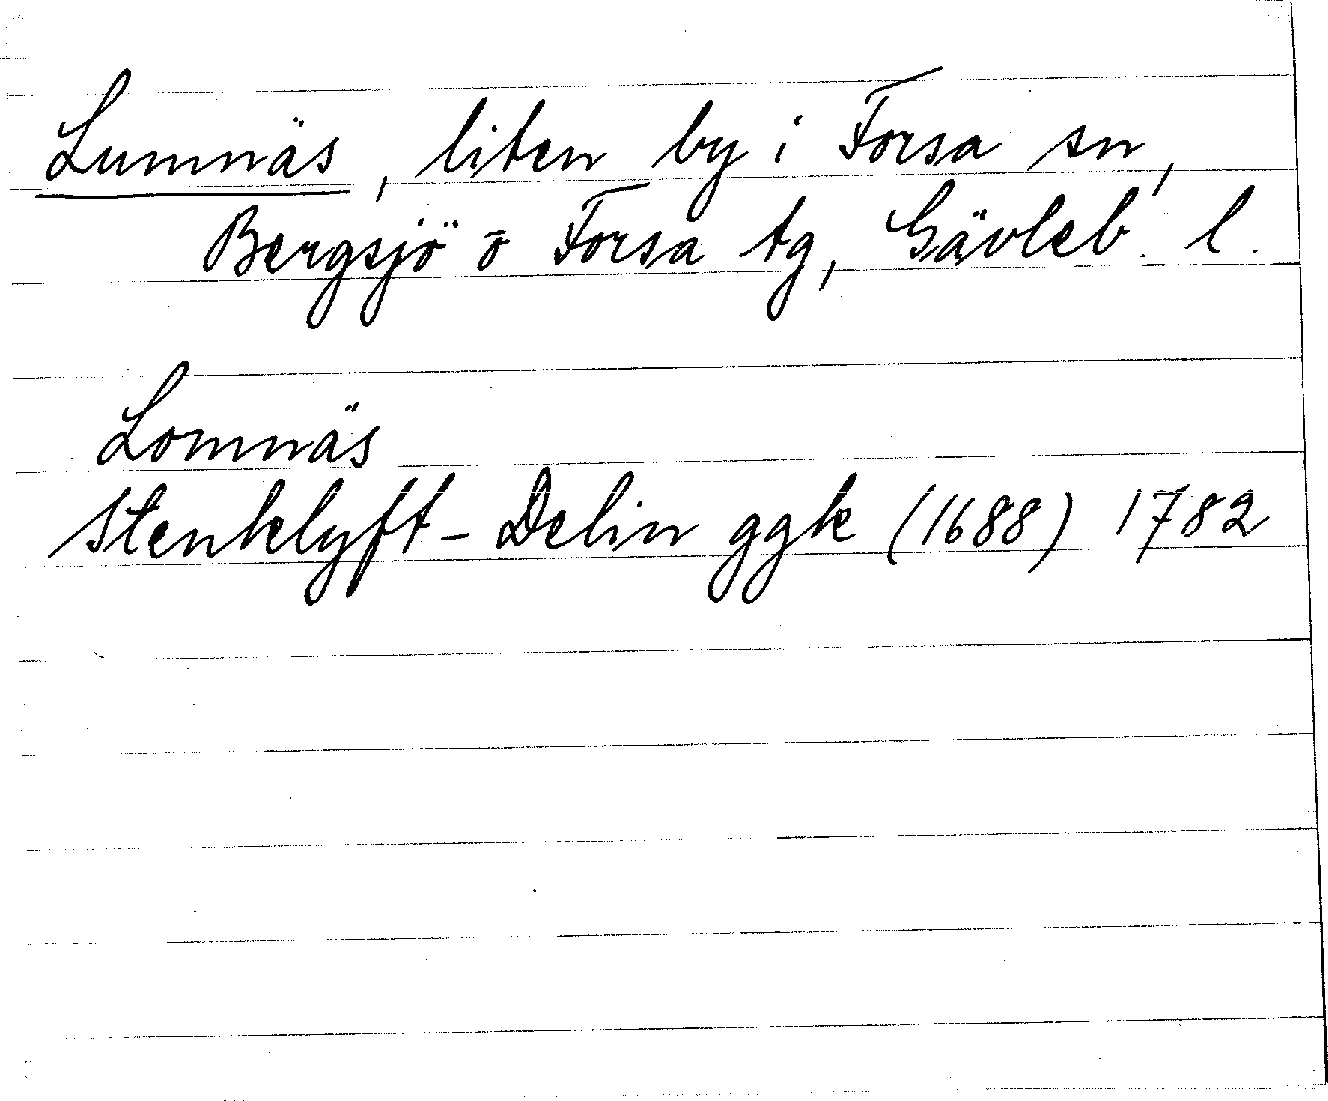 Lumnäs, liten by i Forsa sn,
Bergsjö o Forsa tg, Gävleb. l.
Lomnäs
Stenklyft-Delin ggk (1688) 1782